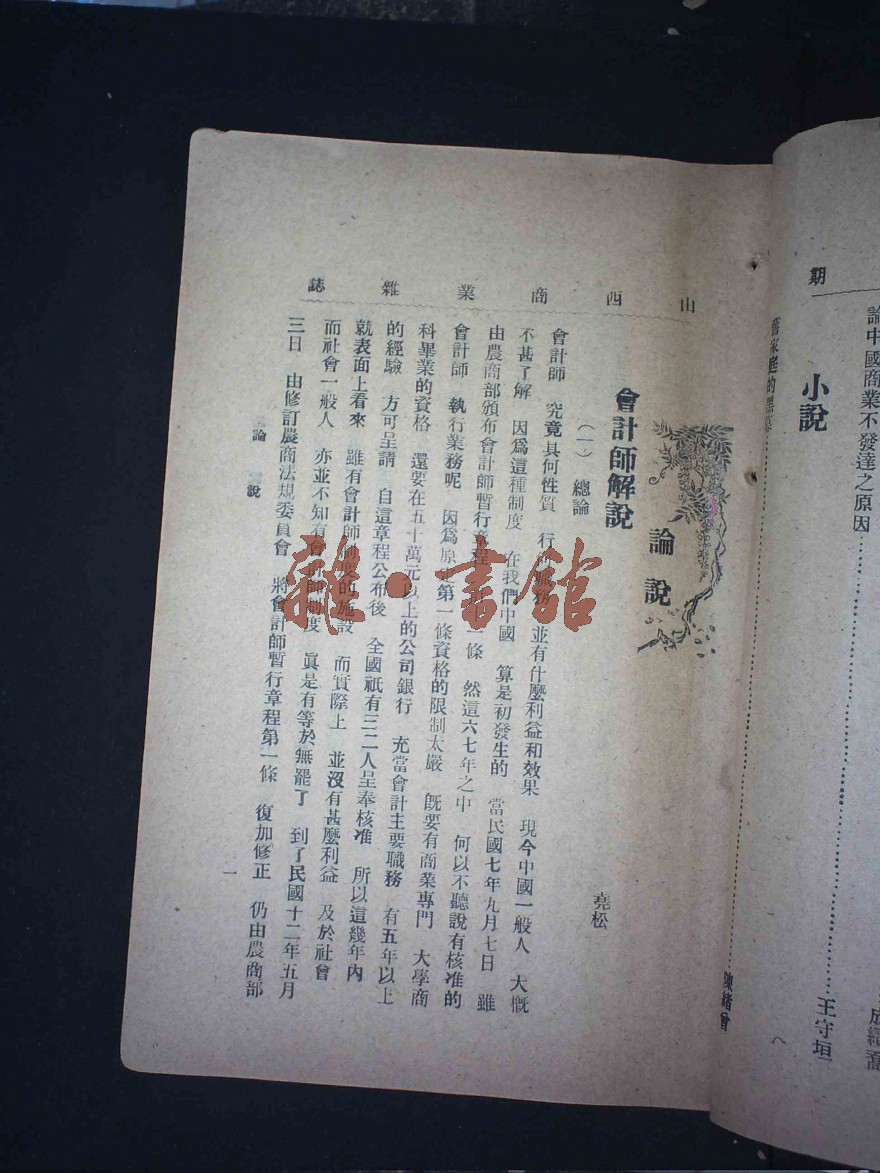 期
論中國商業不發達之原因
王守垣
小說
舊家庭的黑幕
陳緒曾
八
山西商業雜誌
論說
會計師解說
堯松
(一) 總論
會計師 究竟具何性質 行何職務 並有什麼利益和效果 現今中國一般人 大概
不甚了解 因爲這種制度 在我們中國 算是初發生的 當民國七年九月七日 雖
由農商部頒布會計師暫行章程 條 然這六七年之中 何以不聽說有核准的
會計師 執行業務呢 因爲原 第一條資格的限制太嚴 既要有商業專門 大學商
科畢業的資格 還要在五十萬元以上的公司銀行 充當會計主要職務 有五年以上
的經驗 方可呈請 自這章程公布後 全國祇有三二人呈奉核准 所以這幾年內
就表面上看來 雖有會計師制度的施設 而實際上 並沒有甚麼利益 及於社會
而社會一般人 亦並不知有會計師制度 眞是有等於無罷了 到了民國十二年五月
三日 由修訂農商法規委員會 將會計師暫行章程第一條 復加修正 仍由農商部
論說
一
雜·書館